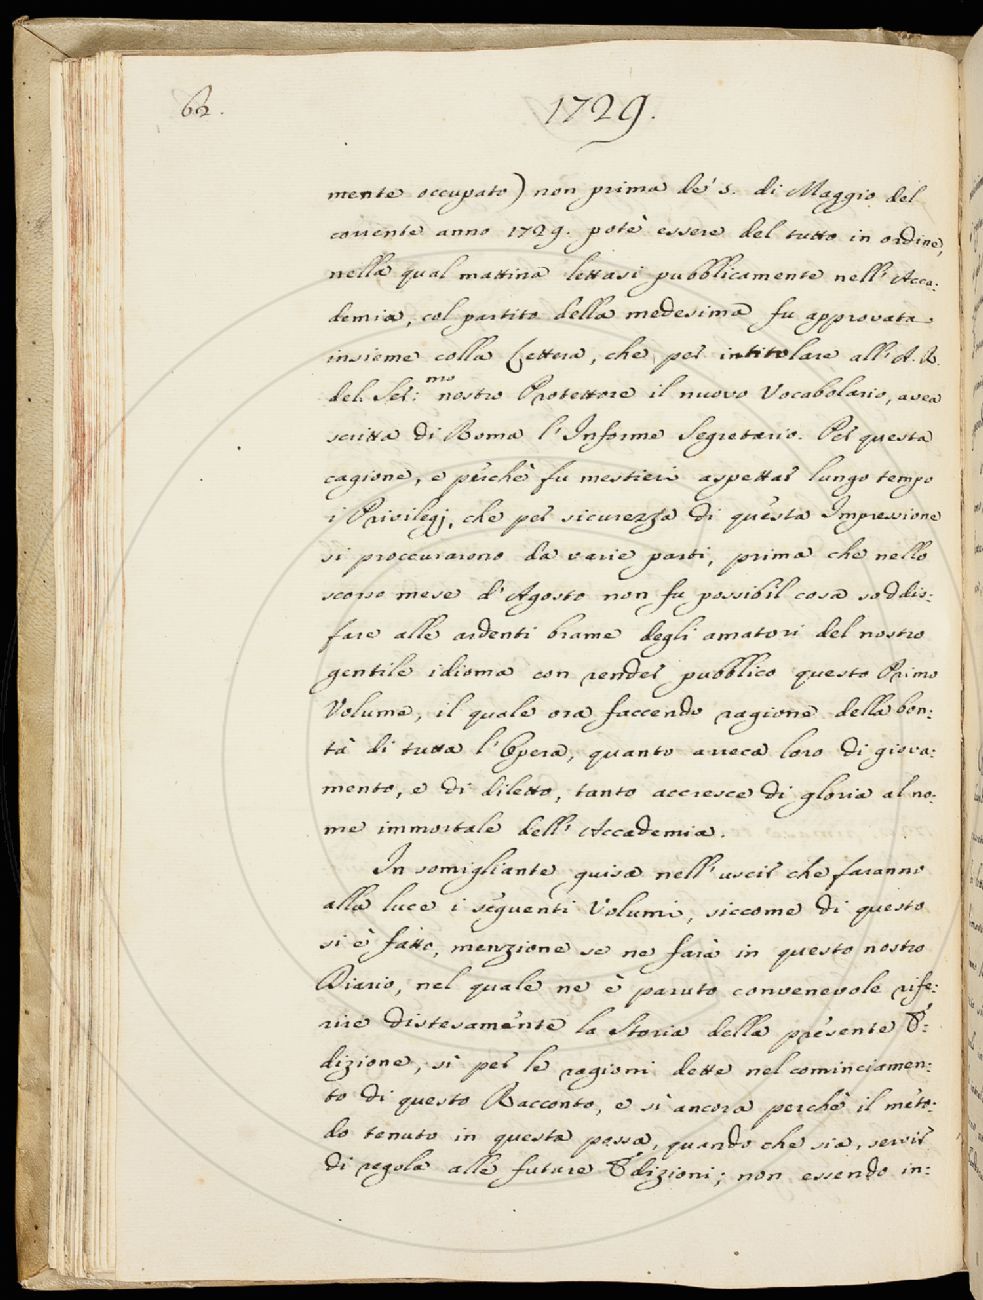 62.
1729.
mente occupato) non prima de' 5. di Maggio del
corrente anno 1729. potè essere del tutto in ordine,
nella qual mattina lettasi pubblicamente nell' Acca:
demia, col partito della medesima fu approvata
insieme colla Lettera, che per intitolare all' A. R.
del Ser:mo nostro Protettore il nuovo Vocabolario, avea
scritta di Roma l' Informe Segretario. Per questa
cagione, e perchè fu mestieri aspettar lungo tempo
i Privilegj, che per sicurezza di questa Impressione
si proccurarono da varie parti, prima che nello
scorso mese d' Agosto non fu possibil cosa soddis:
fare alle ardenti brame degli amatori del nostro
gentile idioma con render pubblico questo Primo
Volume, il quale ora faccendo ragione della bon:
tà di tutta l' Opera, quanto arreca loro di giova:
mento, e di diletto, tanto accresce di gloria al no:
me immortale dell' Accademia.
In somigliante guisa nell' uscir che faranno
alla luce i seguenti Volumi, siccome di questo
si è fatto, menzione se ne farà in questo nostro
Diario, nel quale ne è paruto convenevole rife:
rire distesamente la Storia della presente E:
dizione, sì per le ragioni dette nel cominciamen:
to di questo Racconto, e sì ancora perchè il meto:
do tenuto in questa possa, quando che sia, servir
di regola alle future Edizioni; non essendo in: